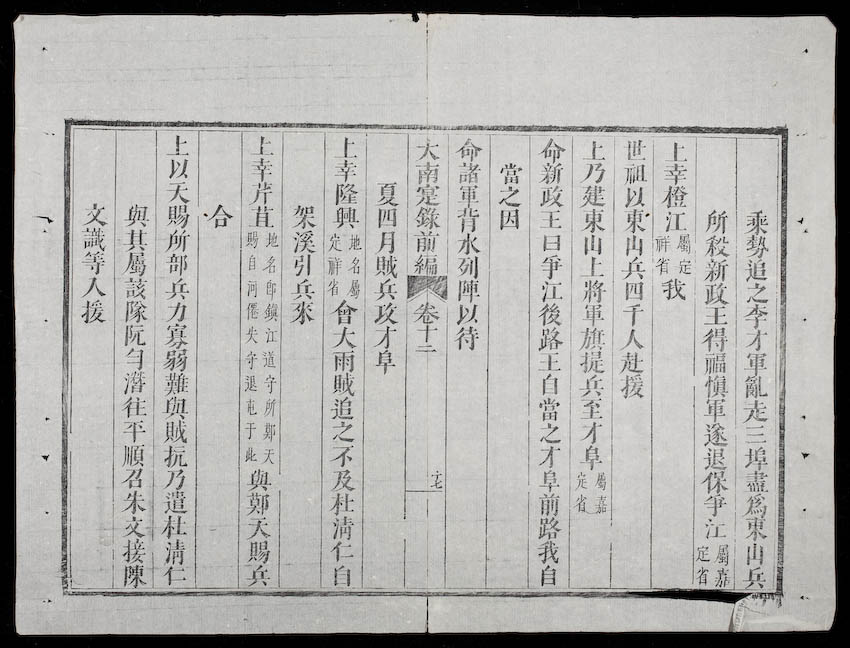 乘勢追之李才軍亂走三埠盡爲東山兵
所殺新政王得福慎軍遂退保爭江屬嘉定省
上幸橙江屬定祥省我
世祖以東山兵四千人赴援
上乃建東山上將軍旗提兵至才阜屬嘉定省
命新政王曰爭江後路王自當之才阜前路我自
當之因
命諸軍背水列陣以待
大南寔錄前編 卷十二 十七
夏四月賊兵攻才阜
上幸隆興地名屬定祥省會大雨賊追之不及杜淸仁自
架溪引兵來
上幸芹苴地名卽鎭江道守所鄭天賜自河僊失守退屯于此與鄭天賜兵
合
上以天賜所部兵力寡弱難與賊抗乃遣杜淸仁
與其屬該隊阮勻潛往平順召朱文接陳
文識等入援